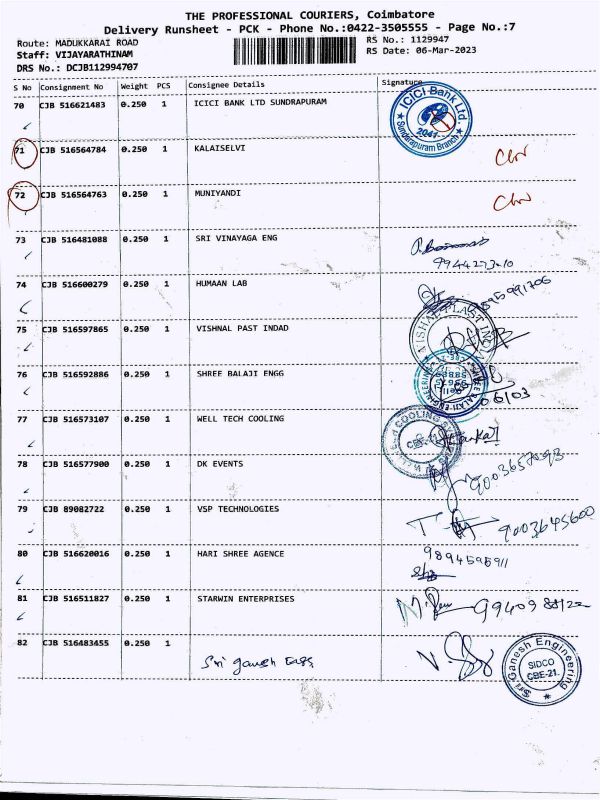 THE PROFESSIONAL COURIERS, Coimbatore
Delivery Runsheet - PCK - Phone No.:0422-3505555 - Page No.:7
Route: MADUKKARAI ROAD
RS No.: 1129947
Staff: VIJAYARATHINAM
RS Date: 06-Mar-2023
DRS No.: DCJB112994707
S No Consignment No Weight PCS Consignee Details Signature
70 CJB 516621483 0.250 1 ICICI BANK LTD SUNDRAPURAM
ICICI Bank Ltd.
2041
Sundarapuram Branch
71 CJB 516564784 0.250 1 KALAISELVI
72 CJB 516564763 0.250 1 MUNIYANDI
73 CJB 516481088 0.250 1 SRI VINAYAGA ENG
74 CJB 516600279 0.250 1 HUMAAN LAB
75 CJB 516597865 0.250 1 VISHNAL PAST INDAD
76 CJB 516592886 0.250 1 SHREE BALAJI ENGG
06/03
77 CJB 516573107 0.250 1 WELL TECH COOLING
78 CJB 516577900 0.250 1 DK EVENTS
79 CJB 89082722 0.250 1 VSP TECHNOLOGIES
9003645600
80 CJB 516620016 0.250 1 HARI SHREE AGENCE
9894595911
81 CJB 516511827 0.250 1 STARWIN ENTERPRISES
82 CJB 516483455 0.250 1
Sri ganesh Engg
Sri Ganesh Engineering
SIDCO
CBE-21.